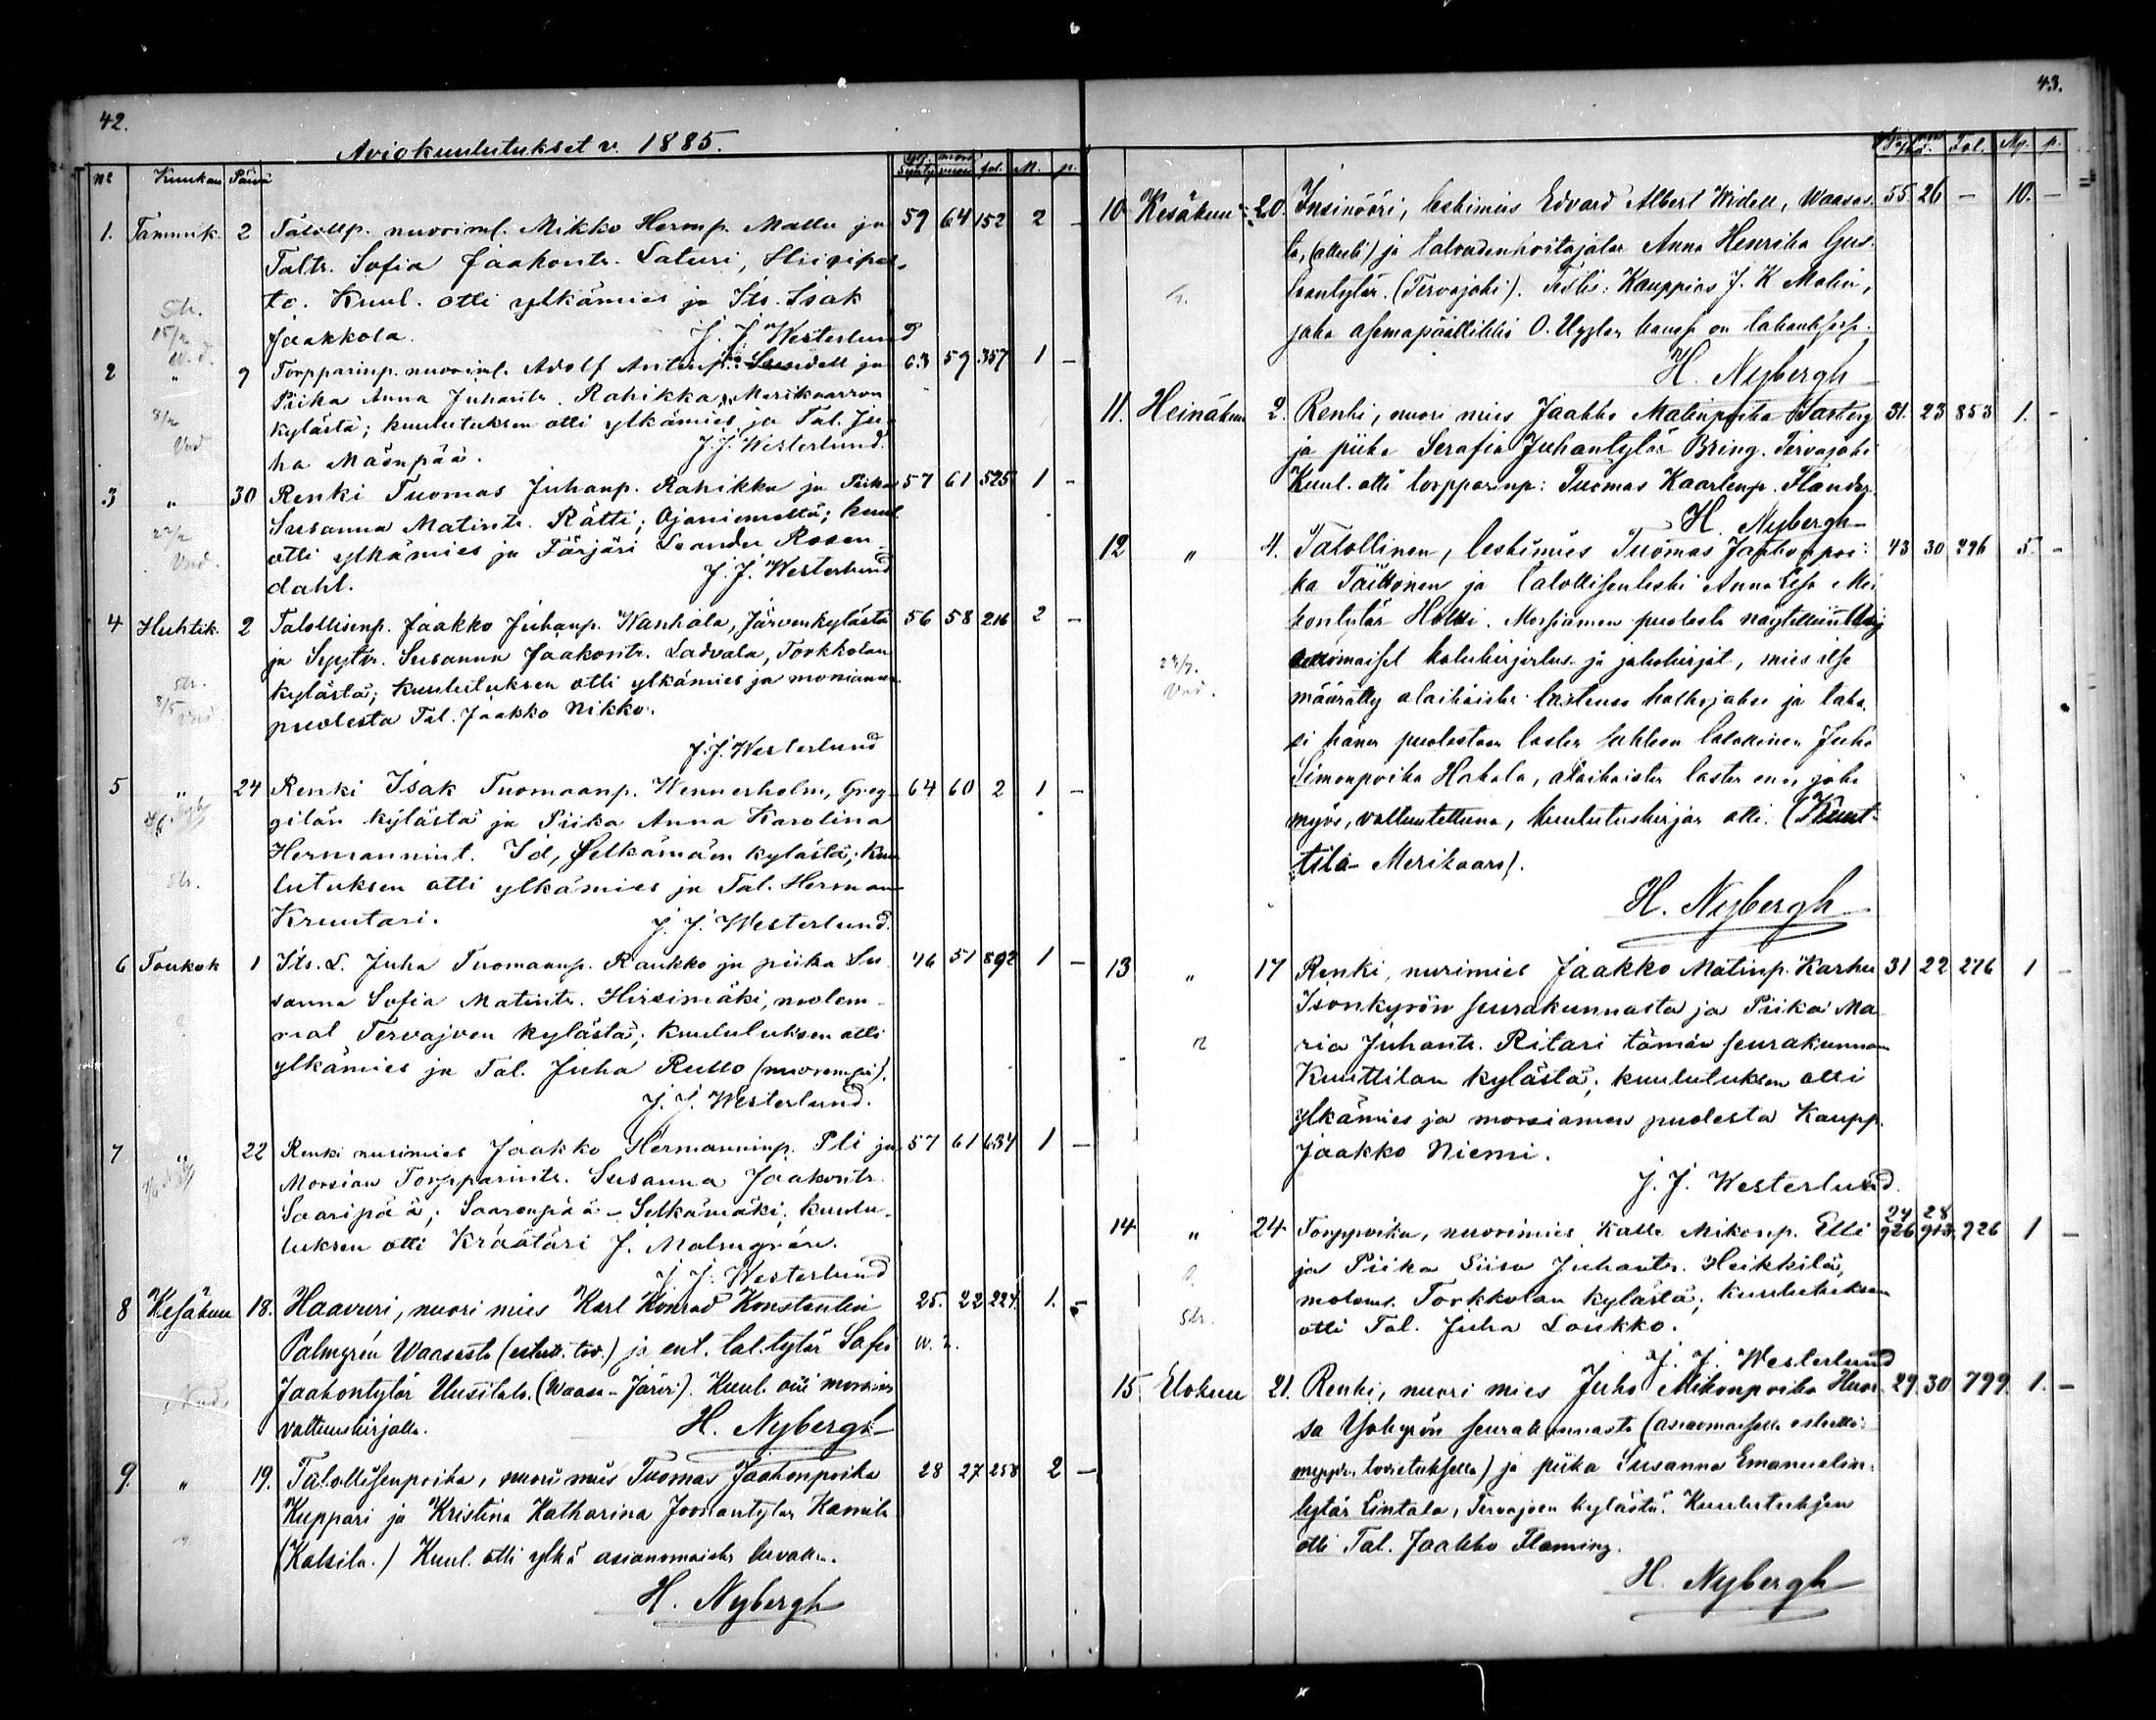 42.
Aviokuulutukset v. 1885.
No Kuukau Päivä fol. M. p.
1. Tammik. 2 Talollp. nuoriml. Mikko Hermp. Mallu ja 59 64 152 2 -
Taltr. Sofia Jaakontr. Saturi, Hiiripel-
to. Kuul. otti ylkämies ja Its. Isak
Jaakkola. J. J. Westerlund
2 " 9 Torpparinp. nuoriml. Adolf Antinp. Sundell ja 63 59 357 1 -
Piika Anna Juhantr. Rahikka, Merikaarron
kylästä; kuulutuksen otti ylkämies ja Tal. Ju-
ha Mäenpää. J. J. Westerlund.
3 " 30 Renki Tuomas Juhanp. Rahikka ja Piika 57 61 525 1 -
Susanna Matintr. Rätti; Ojaniemeltä; kuul.
otti ylkämies ja Färjäri Leander Rosen-
dahl. J. J. Westerlund
4 Huhtik. 2 Talollisenp. Jaakko Juhanp. Wanhala, Järvenkylästä 56 58 216 2 -
ja Syytr. Susanna Jaakontr. Ladvala, Torkkolan
kylästä; kuulutuksen otti ylkämies ja morsiamen
puolesta Tal. Jaakko Nikko.
J. J. Westerlund
5 " 24 Renki Isak Tuomaanp. Wennerholm, Greg- 64 60 2 1 -
gilän kylästä ja Piika Anna Karolina
Hermannint. Id, Selkämäen kylästä; kuu
lutuksen otti ylkämies ja Tal. Herman
Kruutari. J. J. Westerlund.
6 Toukok 1 Its. L. Juha Tuomaanp. Raukko ja piika Su 46 51 892 1 -
sanna Sofia Matintr. Hirsimäki, molem-
mat Tervajoen kylästä; kuulutuksen otti
ylkämies ja Tal. Juha Rullo (nuorempi).
J. J. Westerlund.
7 " 22 Renki nuorimies Jaakko Hermanninp. Pli ja 57 61 634 1 -
Morsian Torpparintr. Susanna Jaakontr.
Saaripää; Saarenpää - Selkämäki. kuulu-
tuksen otti Kräätäri J. Malmgrén.
J. J. Westerlund
8 Kesäkuu 18. Haavuri, nuori mies Karl Konrad Konstantin 25. 22 224. 1. -
Palmgrén Waasasta (estett. tod.) ja ent. tal. tytär Safi
Jaakontytär Uusitalo. (Waasa - Järvi). Kuul. otti morsian
valtuuskirjalla. H. Nybergh
9. " 19. Talollisenpoika, nuori mies Tuomas Jaakonpoika 28 27 258 2 -
Kuppari ja Kristina Katharina Joonantytär Kamila
(Kalsila.) Kuul. otti ylkä asianomaiste luvalla.
H. Nybergh
43.
Fol. My. p.
10. Kesäkuu 20. Insinööri, leskimies Edvard Albert Widell, Waasas- 55 26 - 10. -
ta, (attesti) ja taloudenhoitajatar Anna Henrika Gus-
taantytär. (Tervajoki). Todis: Kauppias J. K Malin,
joka asemapäällikkö O. Uggla
H. Nybergh
11. Heinäkuu 2. Renki, nuori mies Jaakko Matinpoika 31. 23 853 1. -
ja piika Serafia Juhantytär Bring. Tervajoki
Kuul. otti torpparinp: Tuomas Kaarlenp. Flander.
H. Nybergh
12 " 4. Talollinen, leskimies Tuomas Jaakonpoi- 43 30 296 5 -
ka Täikonen ja talollisenleski Anna Lisa Mi-
kontytär Holki. Morsiamen puolesta näytettiin
kalukirjoitus ja jakokirjat, mies itse
määrätty alaikäisten lastensa
si hänen puolestaan lasten talokinen Juho
Simonpoika Hakala, alaikäisten lasten eno, joka
myös, valtuutettuna, kuulutuskirjan otti. (Kuut-
tila - Merikaaro).
H. Nybergh
13 " 17 Renki, nuorimies Jaakko Matinp. Karhu 31 22 276 1 -
Isonkyrön seurakunnasta ja Piika Ma
ria Juhantr. Ritari tämän seurakunnan
Kuuttilan kylästä; kuulutuksen otti
ylkämies ja morsiamen puolesta Kaupp.
Jaakko Niemi.
J. J. Westerlund.
24 28
14 " 24 Torppoika, nuorimies Kalle Mikonp. Elli 926 913 926 1 -
ja Piika Siisa Juhantr. Heikkilä,
molem. Torkkolan kylästä; kuulutuksen
otti Tal. Juha Loukko.
J. J. Westerlund
15. Elokuu 21. Renki, nuori mies Juho Mikonpoika Huor- 29. 30 799. 1. -
sa Ysokyrön seurakunnasta (asianomaisella estettö-
myyden todistuksella) ja piika Susanna Emanuelin-
tytär Lintala, Tervajoen kylästä. Kuulutuksen
otti Tal. Jaakko Flaming.
H. Nybergh